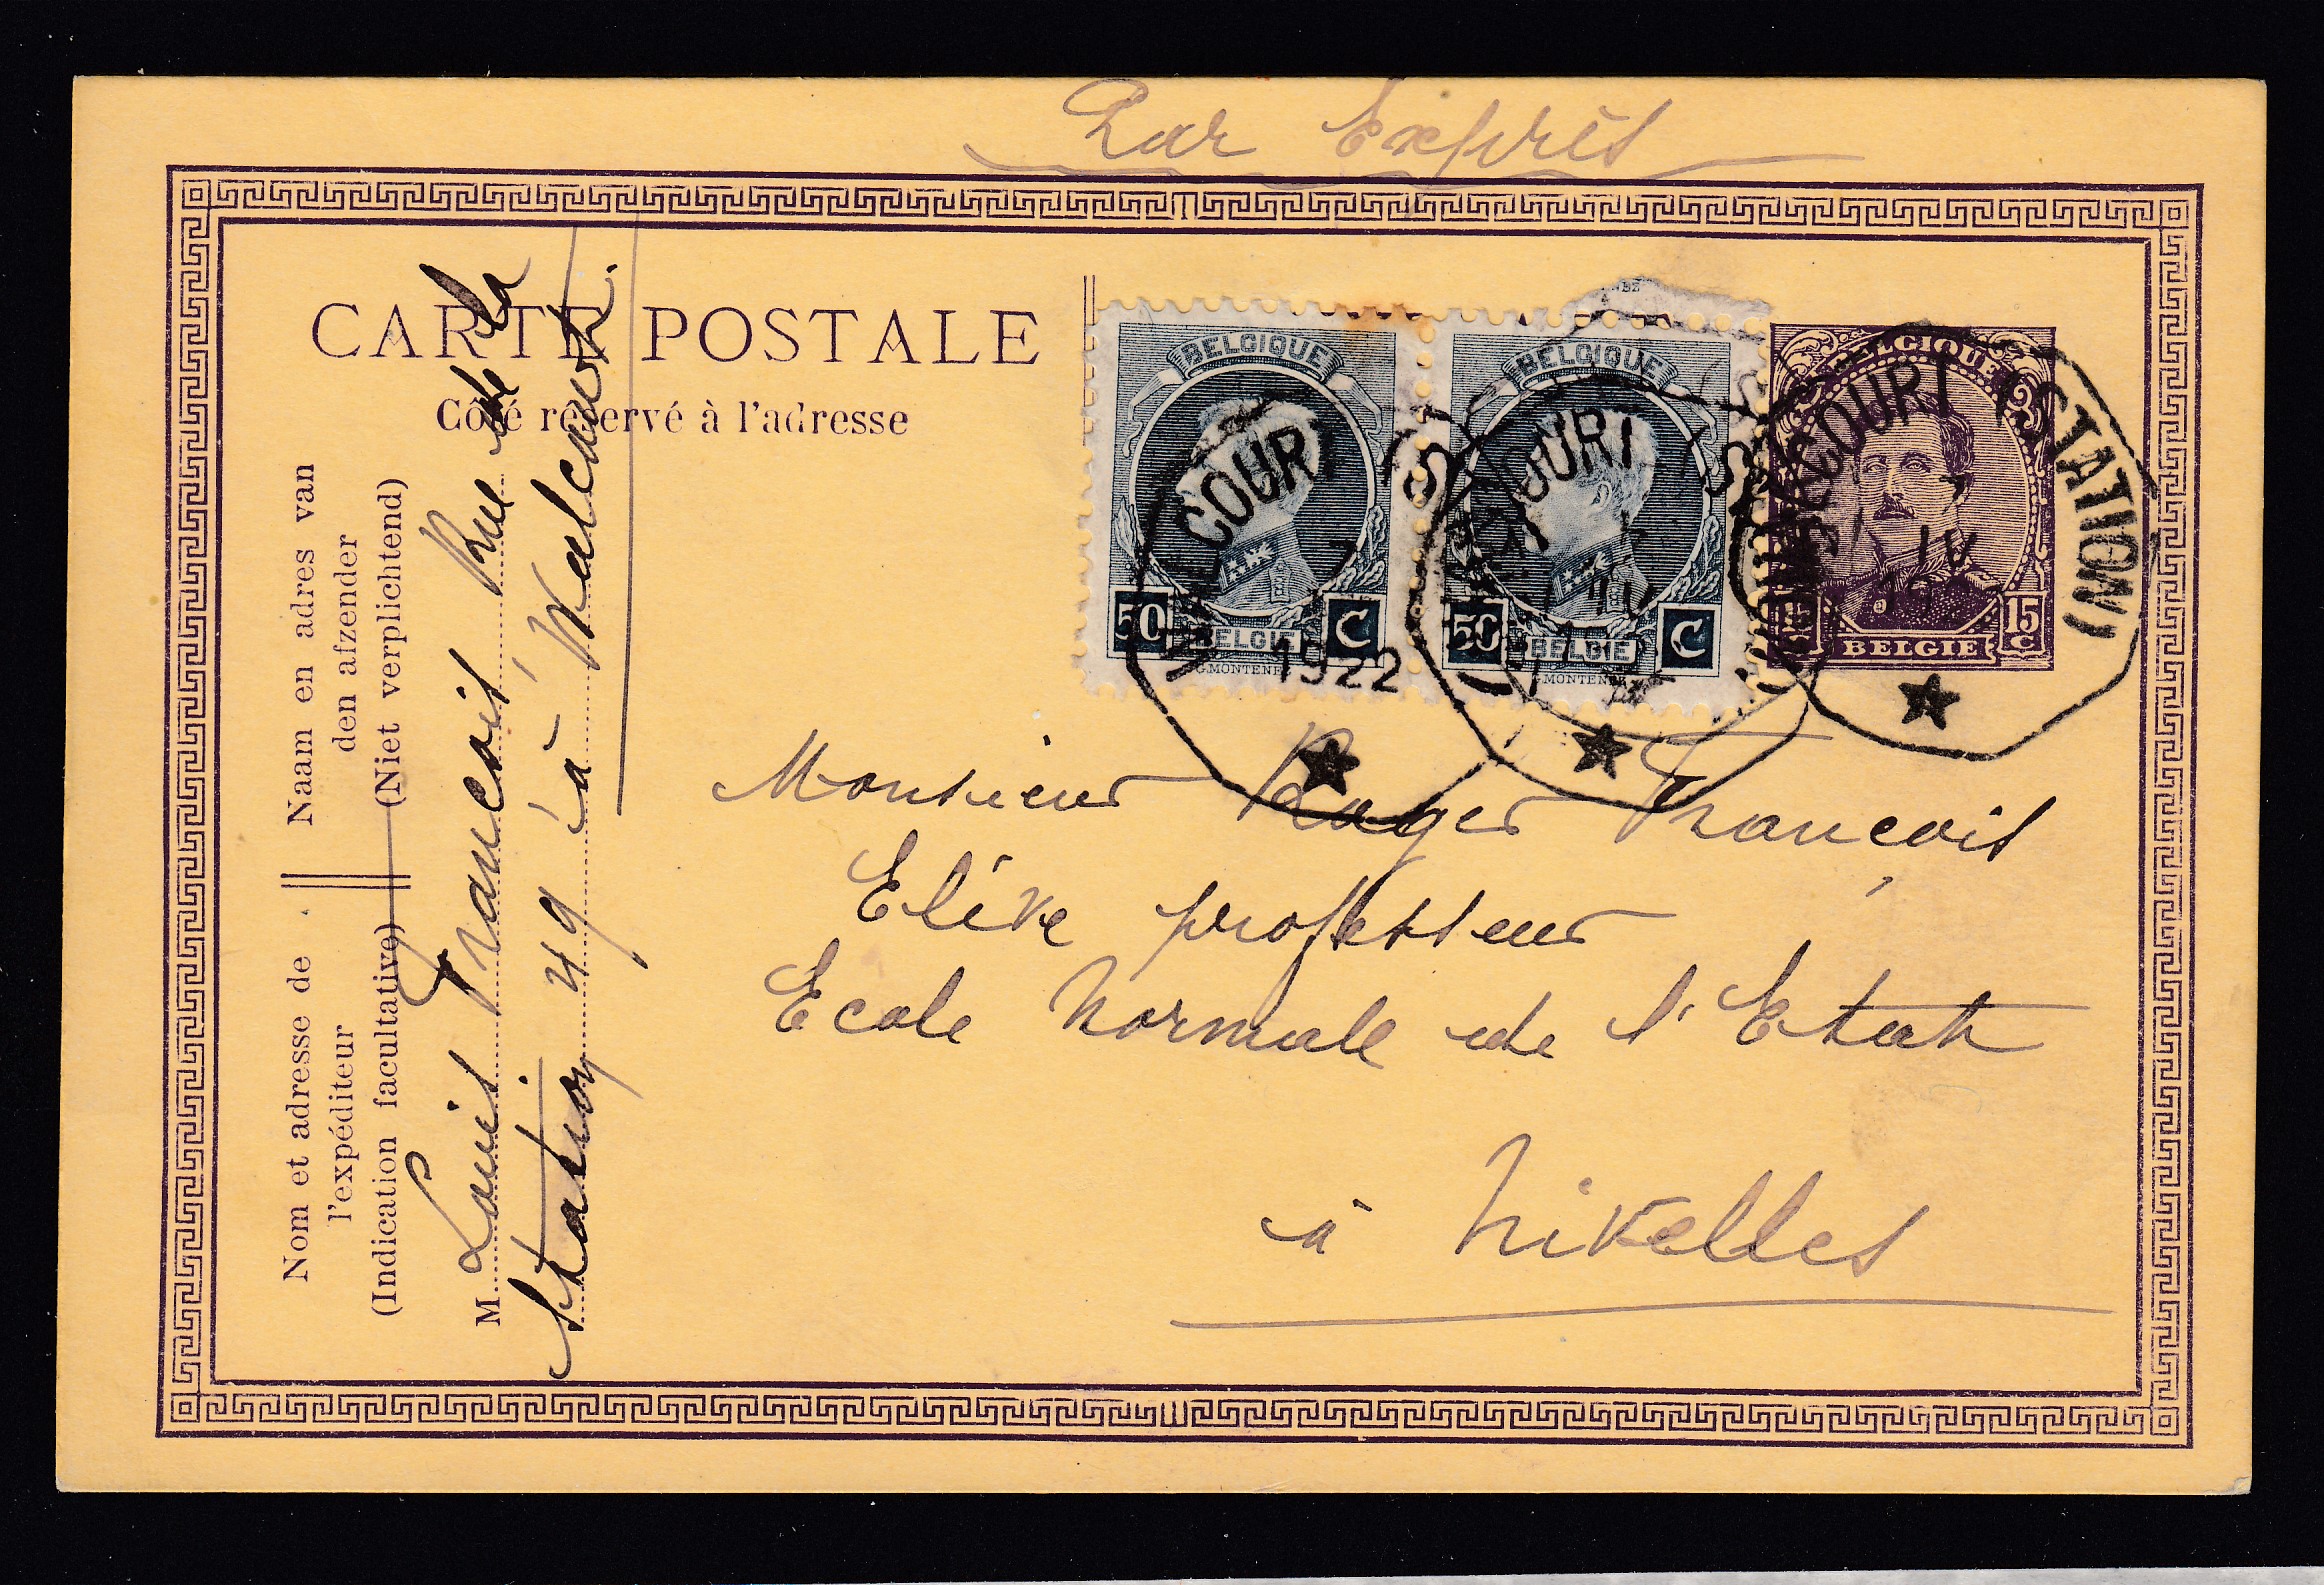 Par Exprès
CARTE POSTALE
Côté réservé à l'adresse
BELGIQUE
50 C
BELGIE
G.MONTENEZ
BELGIQUE
50 C
BELGIE
MONTENEZ
BELGIQUE
15 C
BELGIE
WALCOURT (STATION)
1922
Monsieur Roger François
Elève professeur
Ecole Normale de l'Etat
à Nivelles
Naam en adres van
den afzender
(Niet verplichtend)
Nom et adresse de
l'expéditeur
(Indication facultative)
M. Louis François, Rue de la
Station, 49 à Walcourt.